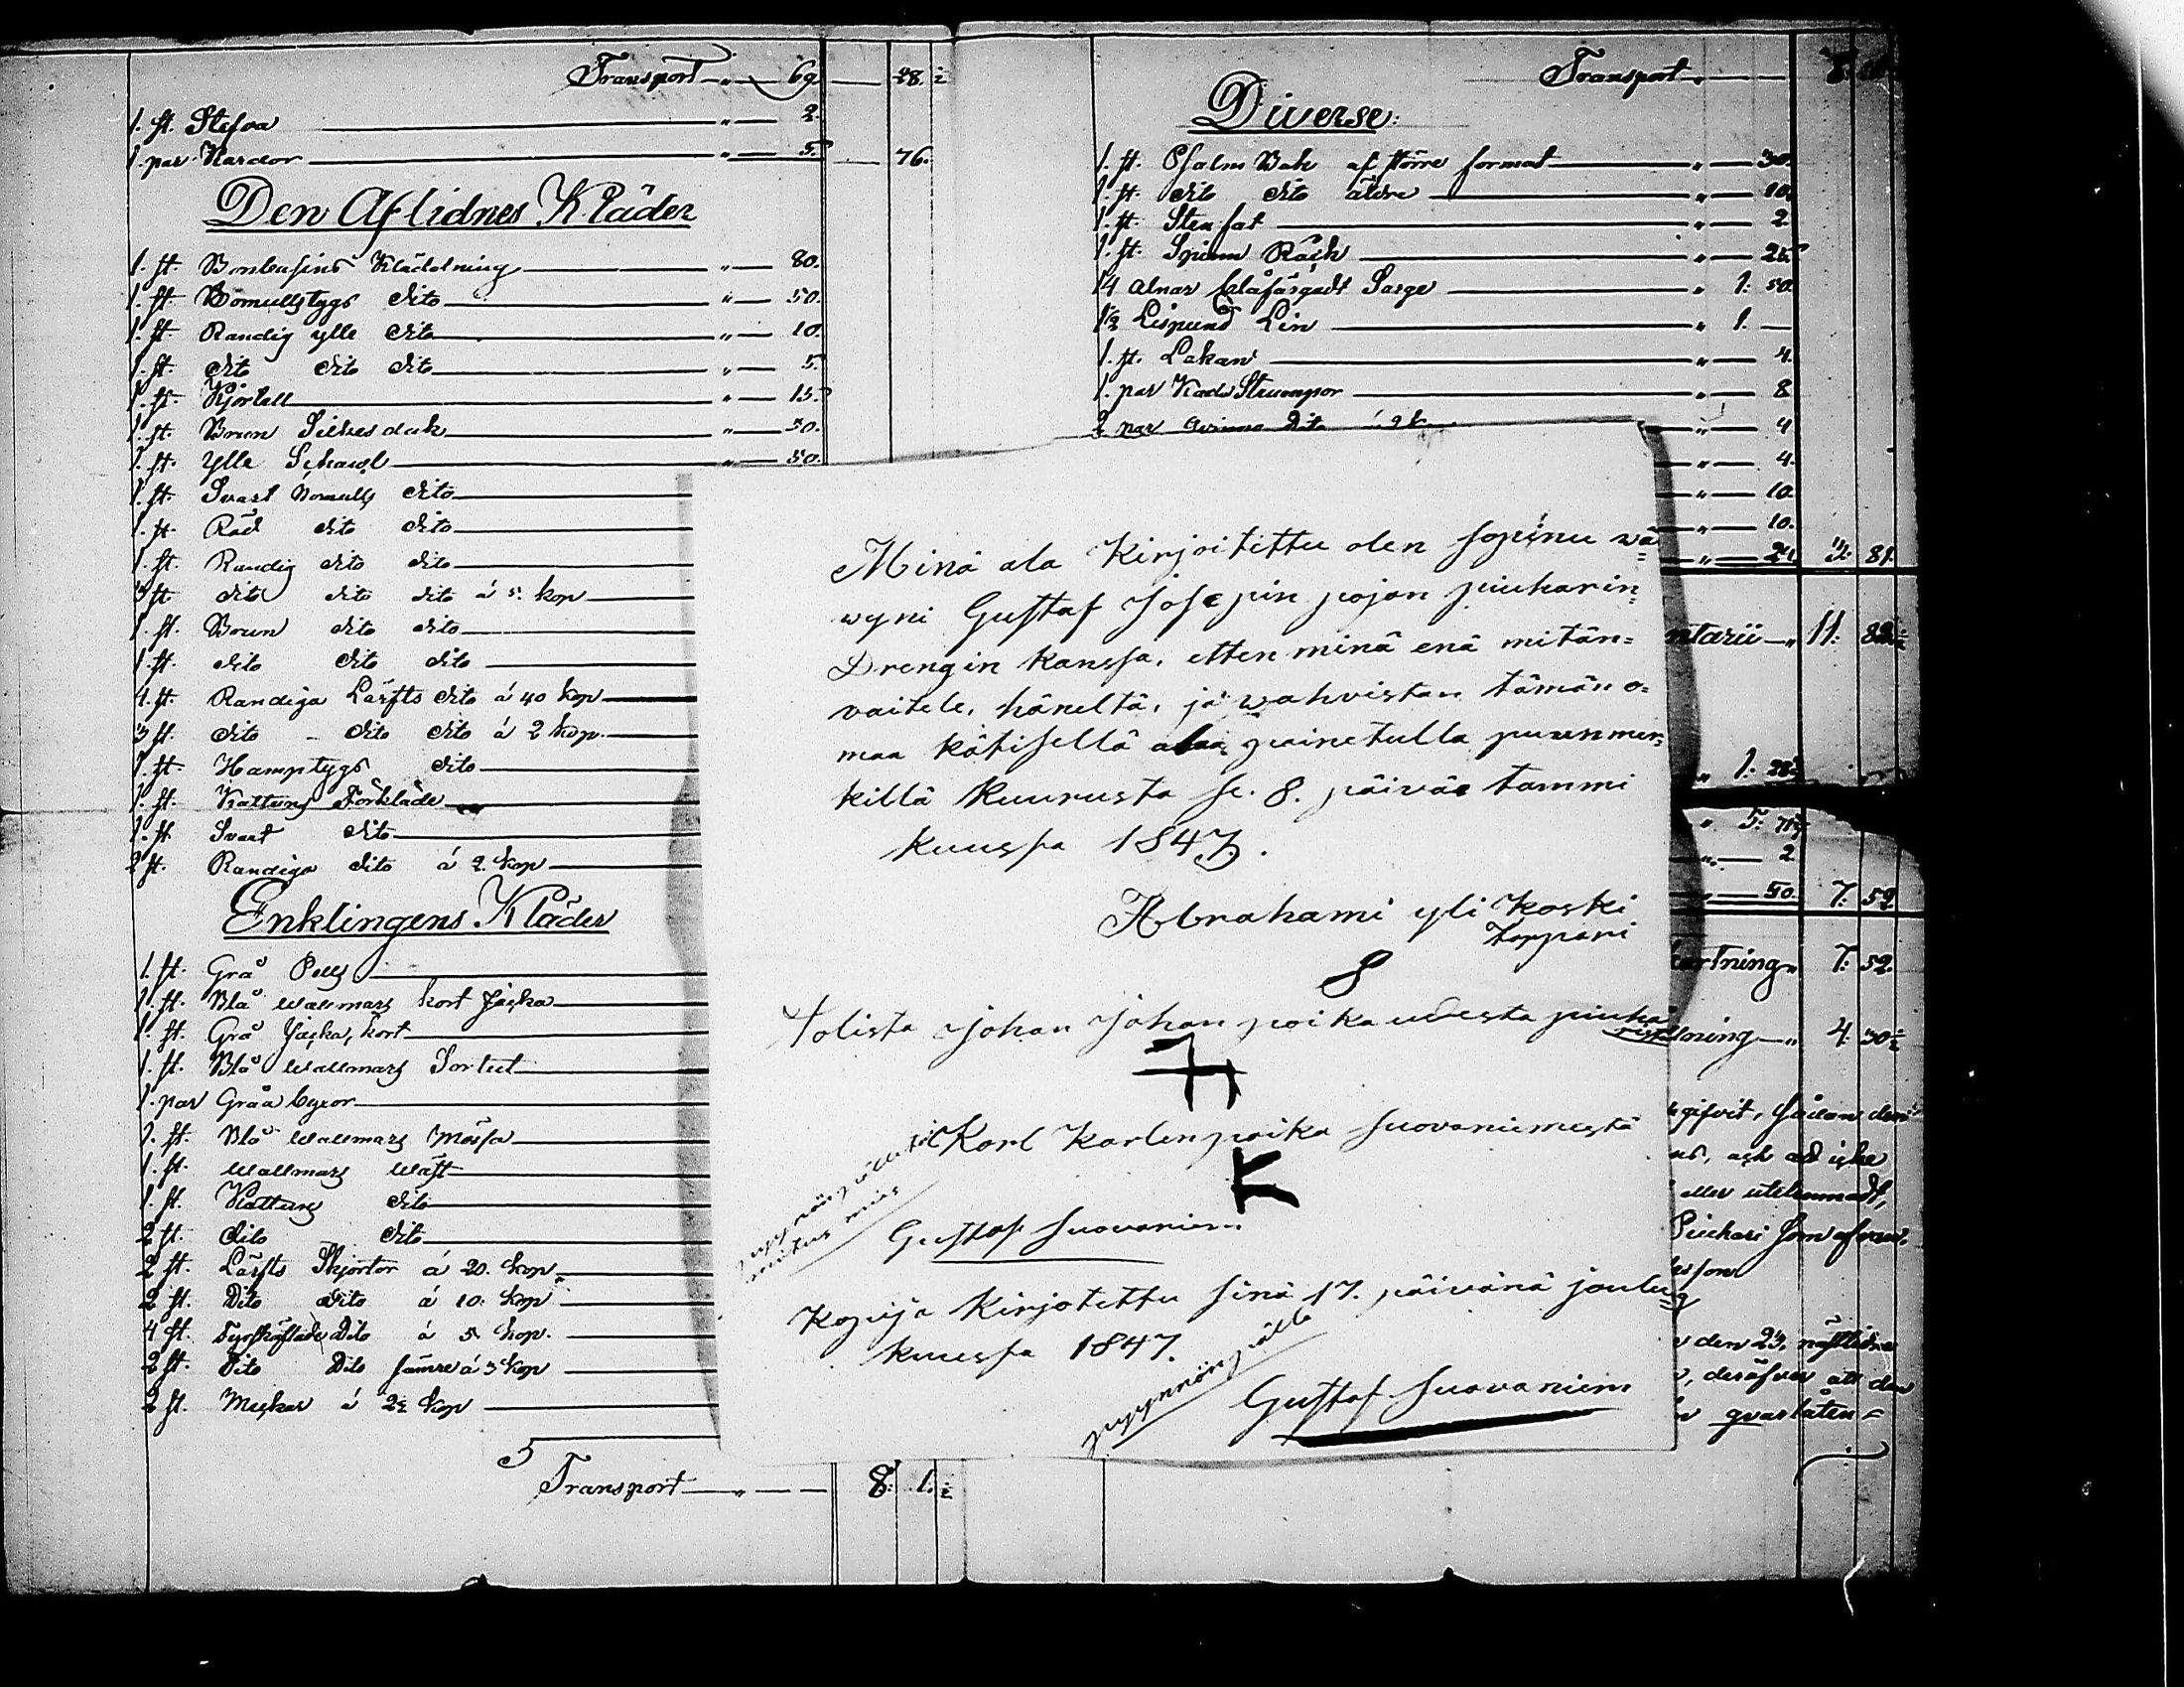 Transport — " — 69. — 28. ½
1. st. Slefva — " — 2.
1. par Kardor — " — 5. — 76.
Den Aflidnes Kläder
1. st. Bombasins Klädning — " — 80.
1. st. Bomullstygs dito — " — 50.
1. st. Randig ylle dito — " — 10.
1. st. dito dito dito — " — 5.
1. st. Kjortell — " — 15.
1. st. Brun Silkesduk — " — 50.
1. st. Ylle Schawl — " — 50.
1. st. Svart Bomulls dito
1. st. Röd dito dito
1. st. Randig dito dito
3 st. dito dito dito á 5. kop
1. st. Brun dito dito
1. st. dito dito dito
4. st. Randiga Lärfts dito á 40 kop
3 st. dito - dito dito á 2 kop.
1. st. Hamptygs dito
1. st. Kattuns Förkläde
1. st. Svart dito
2 st. Randiga dito á 2. kop
Enklingens Kläder
1. st. Grå Pells
1. st. Blå Wallmars kort Jacka
1. st. Grå Jacka, kort
1. st. Blå Wallmars Sortut
1. par Gråa byxor
1. st. Blå Wallmars Mössa
1. st. Wallmars Wäst
1. st. Kattuns dito
2 st. dito dito
2 st. Lärfts Skjortor á 20. kop
2 st. Dito dito á 10. kop
4 st. Dito á 5 kop.
2 st. Dito Dito sämre á 3 kop
2 st. á 2½ kop
Transport — " — — 8. 1. ½
Transport — " —
Diverse:
1. st. Psalm Bok af större format — " — 30.
1. st. dito dito äldre — " — 10.
1. st. Stenfat — " — 2.
1. st. Spinn Råck — " — 25
14 alnar blåfärgadt Sarge — " 1: 50.
1½ Lispund Lin — " 1. —
1. st. Lakan — " — 4.
1. par Strumpor — " — 8
2 par Dito á 2 k — " — 4
" — 4.
" — 10.
" — 10.
" — 24. 3: 81.
ntarii — " 11: 82½
" 1: 28½
" 5: 71½
" — 2
" — 50. 7. 52
kortning " 7: 52.
ning — " 4. 30½
Minä ala Kirjoitettu olen sopinu wä=
wyni Gustaf Josepin pojan piuharin=
Drengin kanssa, etten minä enä mitän=
vaitele, häneltä, ja wahvistan tämän o=
maa kätisellä alaa painetulla puunmer=
killä Kuurusta se. 8. päiväe tammi
kuussa 1847.
Abrahami yli Koski
torppari
8
tolista Johan Johan poika udesta piuha
Karl Karlen poika suovaniemestä
K
Gustaf Suovaniem
Kopija Kirjotettu sinä 17. päivänä joulu=
kuussa 1847.
pyynnön pälle
Gustaf Suovaniem
gifvit, sådan den
eller utelemnadt,
Piuhari som
son
den 23. nästledne
, deröfver att den
qvarlåten=